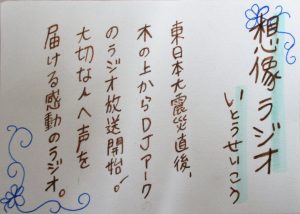 想像ラジオ
いとうせいこう
東日本大震災直後、
木の上からDJアーク
のラジオ放送開始!
大切な人へ声を
届ける感動のラジオ。